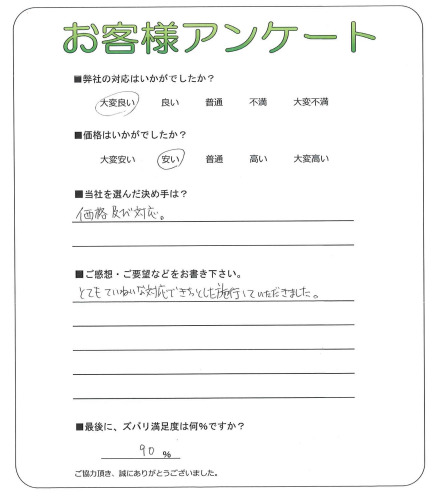 お客様アンケート
■弊社の対応はいかがでしたか？
大変良い 良い 普通 不満 大変不満
■価格はいかがでしたか？
大変安い 安い 普通 高い 大変高い
■当社を選んだ決め手は？
価格及び対応。
■ご感想・ご要望などをお書き下さい。
とてもていねいな対応できちっとした施行していただきました。
■最後に、ズバリ満足度は何%ですか？
90 %
ご協力頂き、誠にありがとうございました。